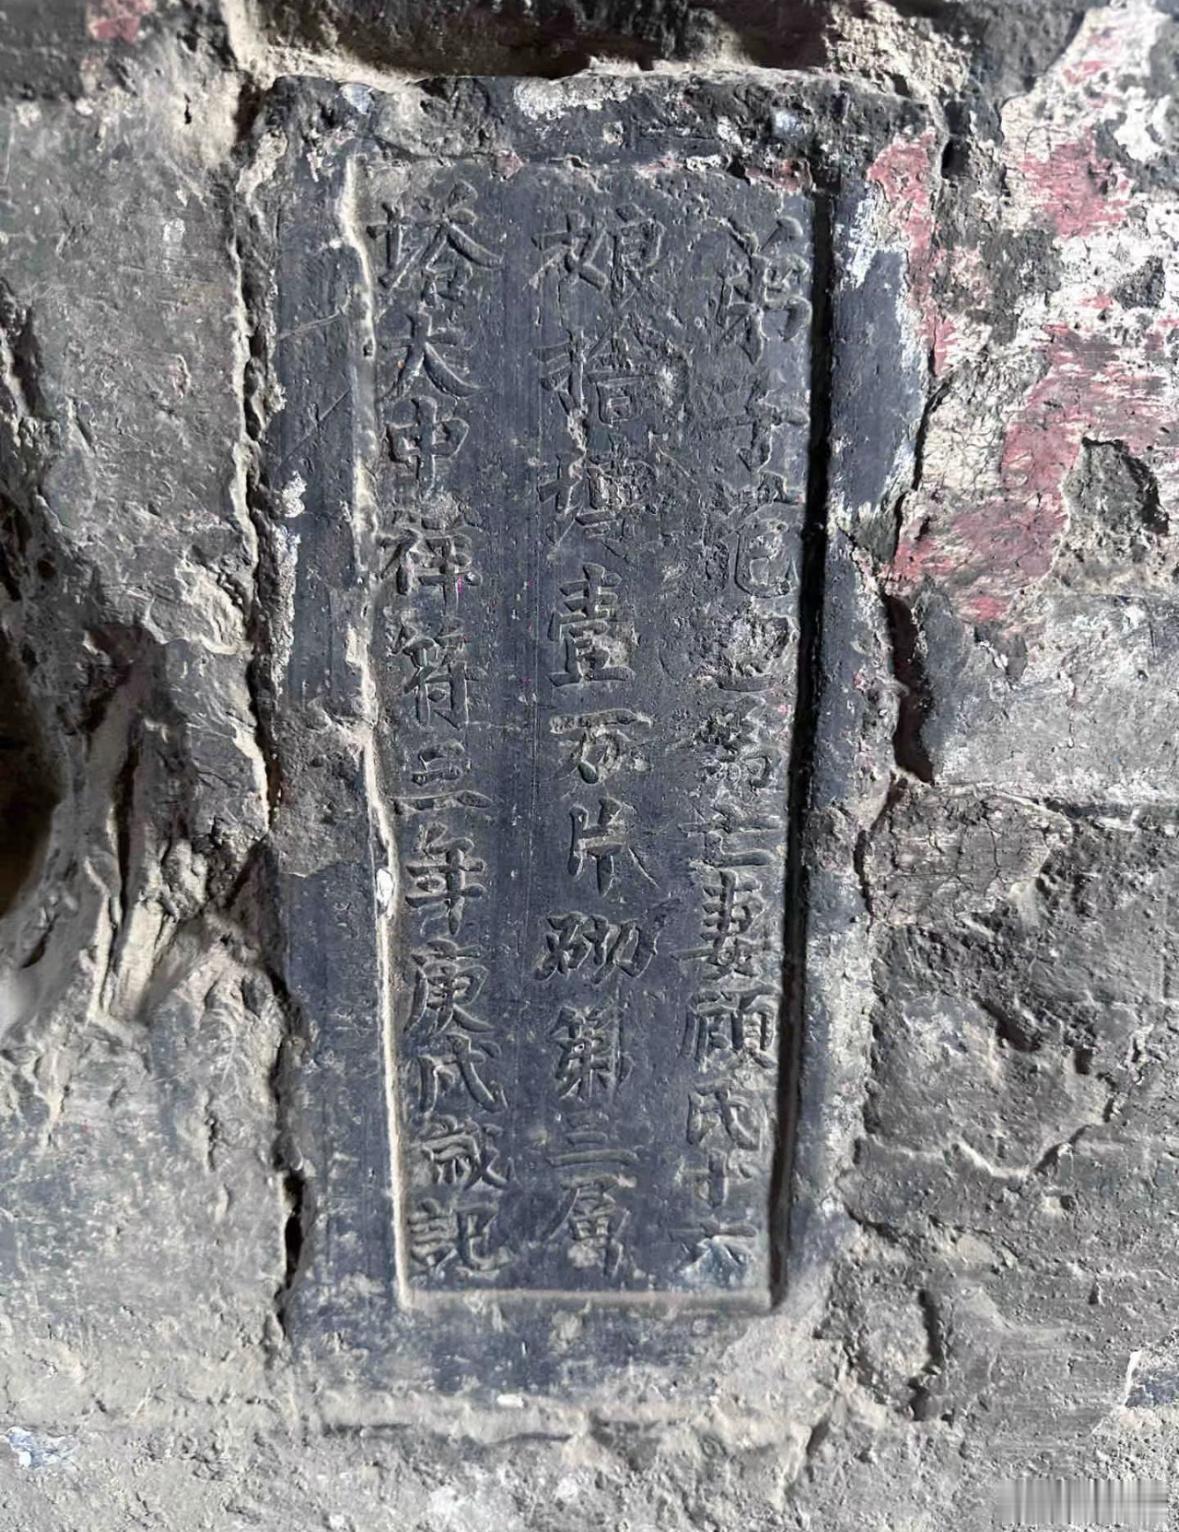 弟子爲亡妻顧氏十六
娘捨塼壹万片砌第三層
塔大中祥符三年庚戌歲記